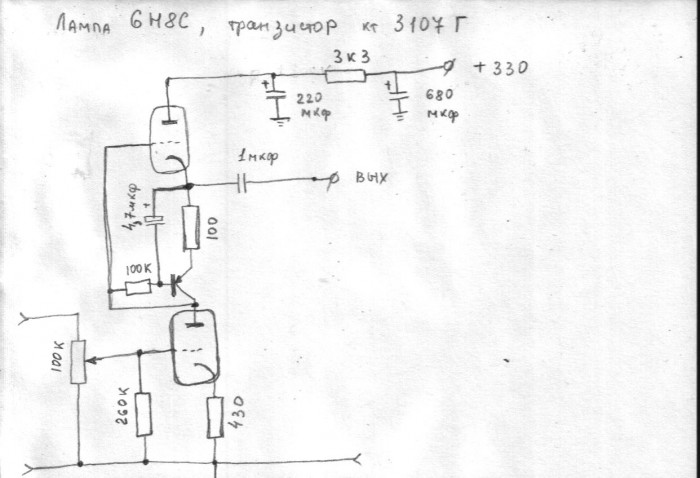 Лампа 6Н8С, транзистор кт 3107Г
3к3
+330
+
220
мкф
+
680
мкф
1мкф
вых
4,7мкф
+
100
100К
100К
260К
430